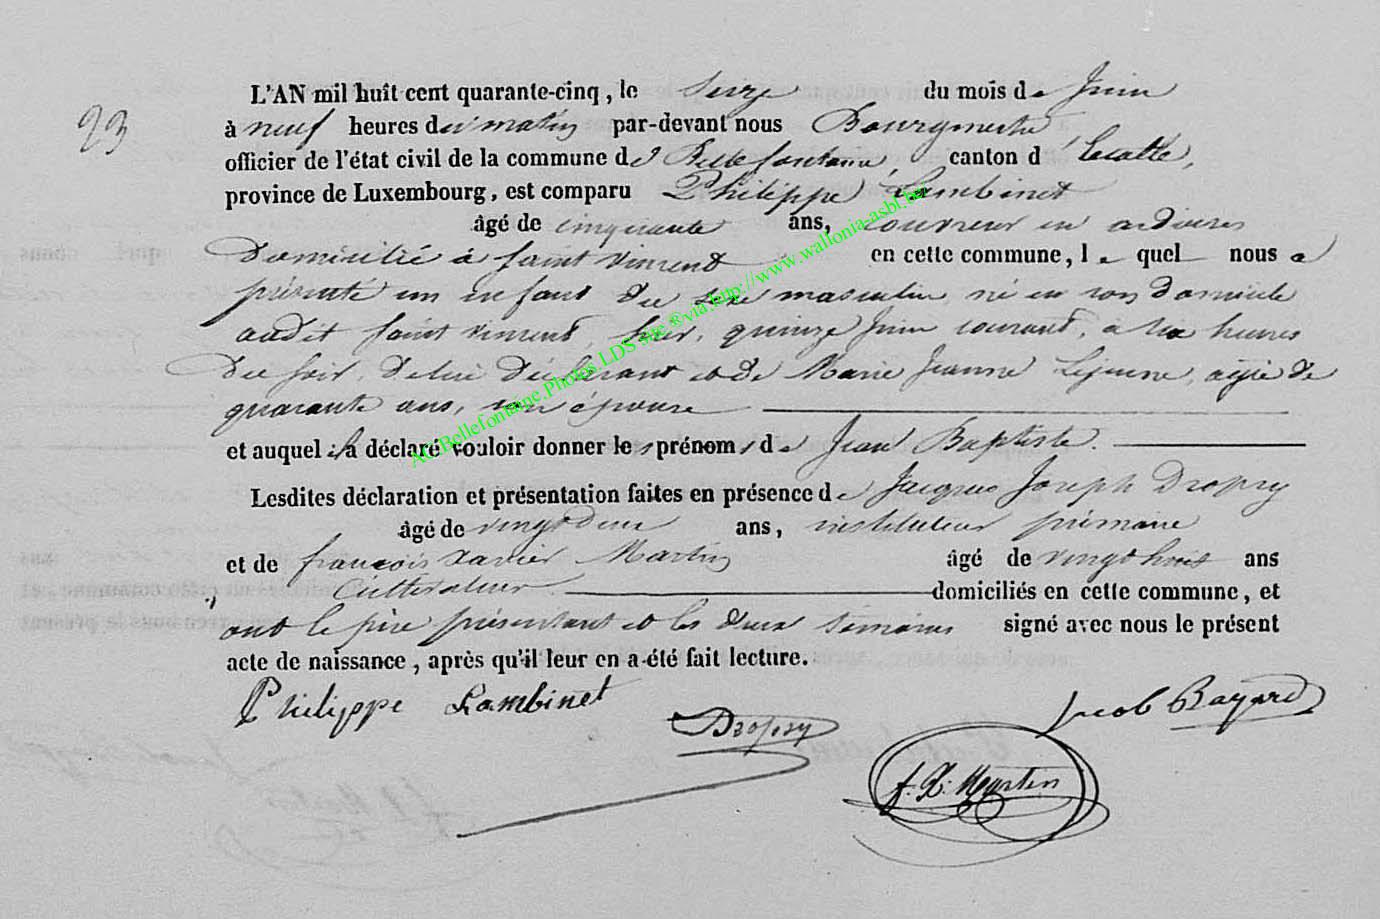 23
L'AN mil huit cent quarante-cinq, le Seize du mois de Juin
à neuf heures du matin par-devant nous Bourgmestre
officier de l'état civil de la commune de Bellefontaine, canton d'Etalle,
province de Luxembourg, est comparu Philippe Lambinet
âgé de cinquante ans, couvreur en ardoises
domicilié à Saint Vincent en cette commune, le quel nous a
présenté un enfant du sexe masculin né en son domicile
audit Saint Vincent, hier, quinze Juin courant, a six heures
du soir, de lui déclarant et de Marie Jeanne Lejeune, agée de
quarante ans, son épouse
et auquel il a déclaré vouloir donner les prénoms de Jean Baptiste.
Lesdites déclaration et présentation faites en présence de Jacques Joseph Dropsy
âgé de vingt deux ans, instituteur primaire
et de françois Xavier Martin âgé de vingt huit ans
Cultivateur domiciliés en cette commune, et
ont le père présentant et les deux témoins signé avec nous le présent
acte de naissance, après qu'il leur en a été fait lecture.
Philippe Lambinet
Dropsy
f. X. Martin
Jacob Bayard
AC.Bellefontaine.Photos LDS site ®via http://www.wallonia-asbl.be